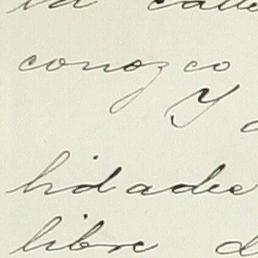 la calle
conozco
Y
lidades
libre d